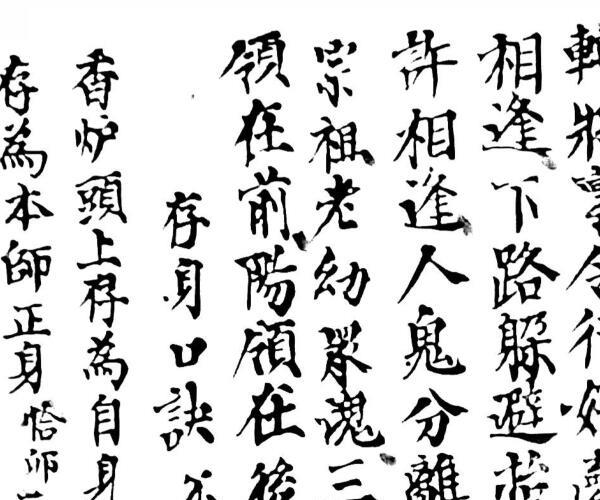 將軍令行如
相逢下路躲避
許相逢人鬼分離
宗祖老幼眾魂三
領在前陽領在後
存身口訣
香炉頭上存為自身
存為本師正身恰卯